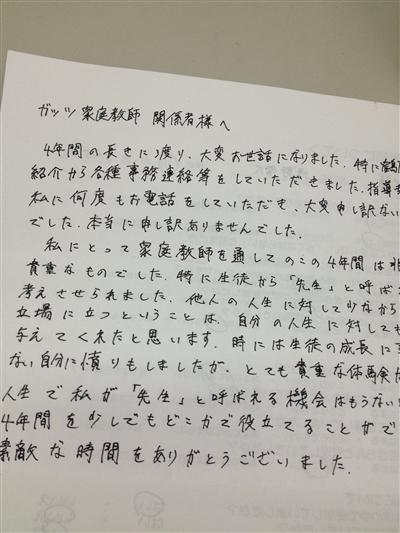 ガッツ家庭教師 関係者様へ
4年間の長きに渡り、大変お世話になりました。特に
紹介から各種事務連絡等をしていただきました。指導
私に何度もお電話をしていただき、大変申し訳ない
でした。本当に申し訳ありませんでした。
私にとって家庭教師を通してのこの4年間は
貴重なものでした。特に生徒から「先生」と呼ば
考えさせられました。他人の人生に対して少なから
立場に立つということは、自分の人生に対しても
与えてくれたと思います。時には生徒の成長に
ない自分に憤りもしましたが、とても貴重な体験
人生で私が「先生」と呼ばれる機会はもうない
4年間を少しでもどこかで役立てることがで
素敵な時間をありがとうございました。